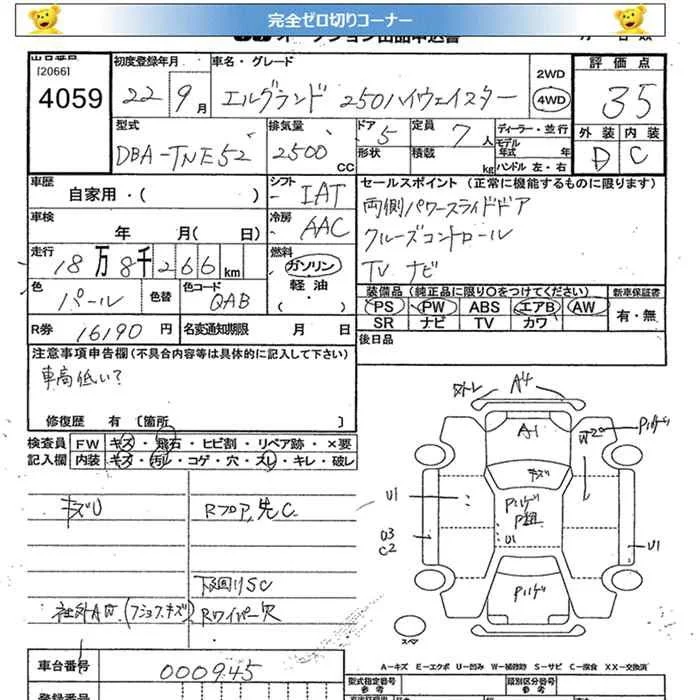 完全ゼロ切りコーナー
オークション出品申込書
出品番号
[2066]
4059
初度登録年月
22 9 月
車名・グレード
エルグランド 250ハイウェイスター
2WD
4WD
評価点
3.5
外装 内装
D C
型式
DBA-TNE52
排気量
2500 CC
ドア 5
形状
定員 7 人
積載 kg
ディーラー・並行
モデル年式 年式
ハンドル 左・右
車歴
自家用・( )
シフト IAT
車検
年 月( 日)
冷房 AAC
走行
18万8千266km
燃料
ガソリン
軽油
( ・ )
色 パール 色替
色コード QAB
R券 16190 円
名変通知期限 月 日
セールスポイント (正常に機能するものに限ります)
両側パワースライドドア
クルーズコントロール
TV ナビ
装備品(純正品に限り○をつけてください)
新車保証書
PS PW ABS エアB AW
SR ナビ TV カワ
有・無
後日品
注意事項申告欄(不具合内容等は具体的に記入して下さい)
車高低い?
修復歴 有 [箇所 ]
検査員記入欄
FW キズ・飛石・ヒビ割・リペア跡・×要
内装 キズ・汚レ・コゲ・穴・スレ・キレ・破レ
キズU
Rフロア先C
下回りSC
社外AW(フショク.キズ)
Rワイパー欠
A4
A1
W2
Pハゲ
キズ
Pハゲ
U1
U1
U3
C2
U1
Pハゲ
スペア
A-キズ E-エクボ U-凹み W-補修跡 S-サビ C-腐食 XX-交換済
車台番号 000945
型式指定番号
参考
類別区分番号
参考
登録番号